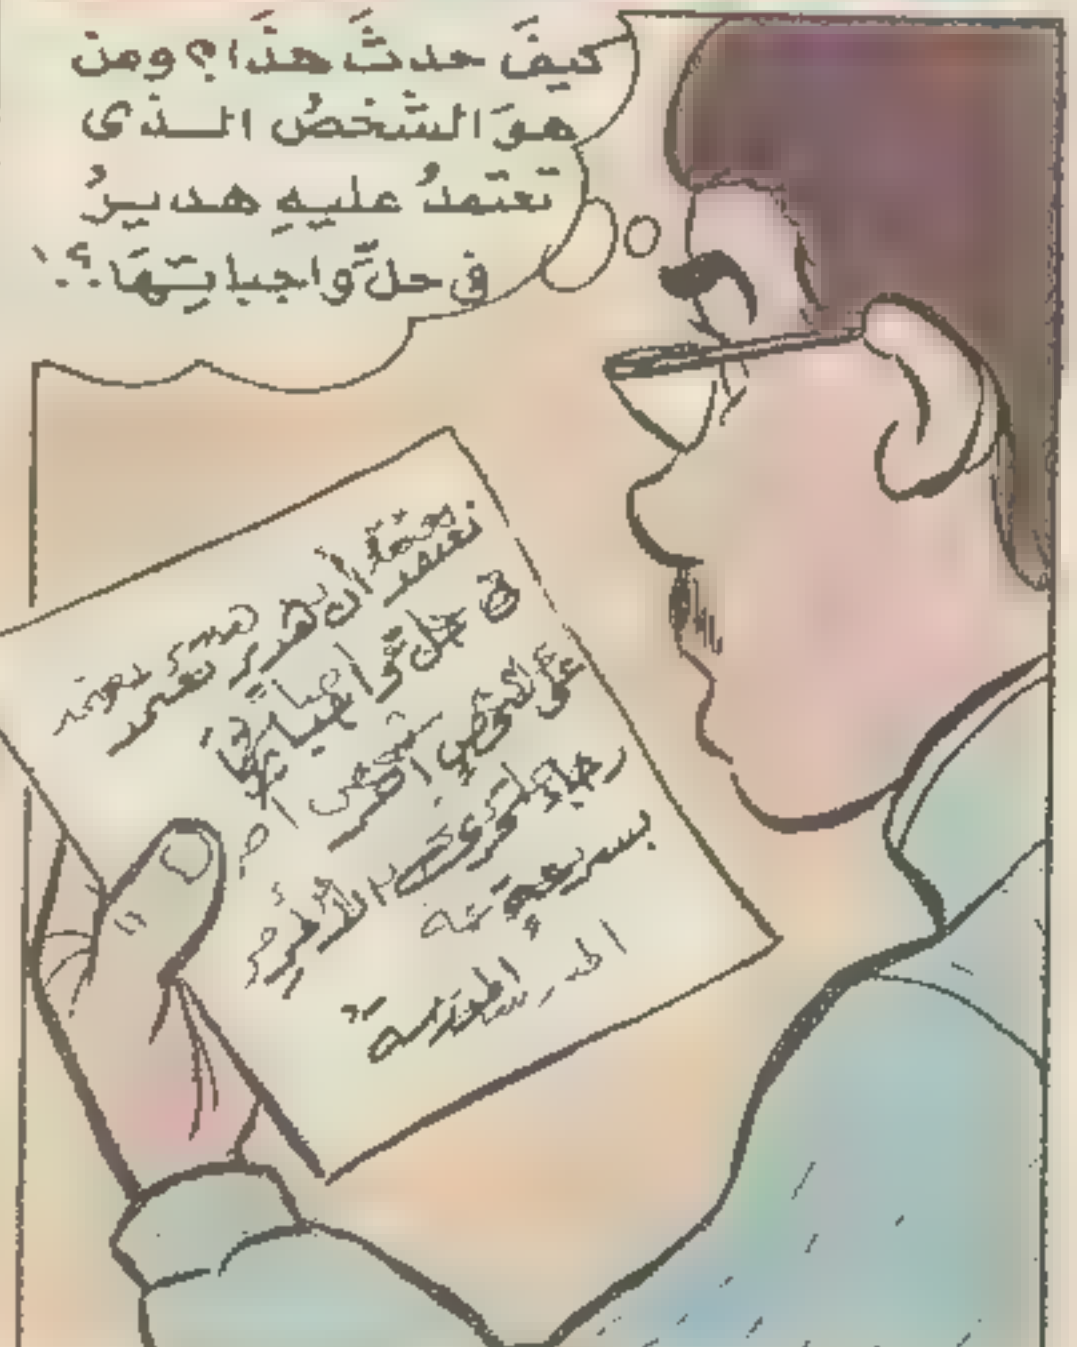 كيفَ حدثَ هذَا؟ ومن
هوَ الشَّخصُ الـذى
تعتمدُ عليهِ هديرُ
فى حلِّ واجباتِهَا؟!
نعتقد أن هدير تعتمد
فى حل واجباتها
على شخص آخر
رجاء التحرى عن الأمر
بسرعة
المدرسة